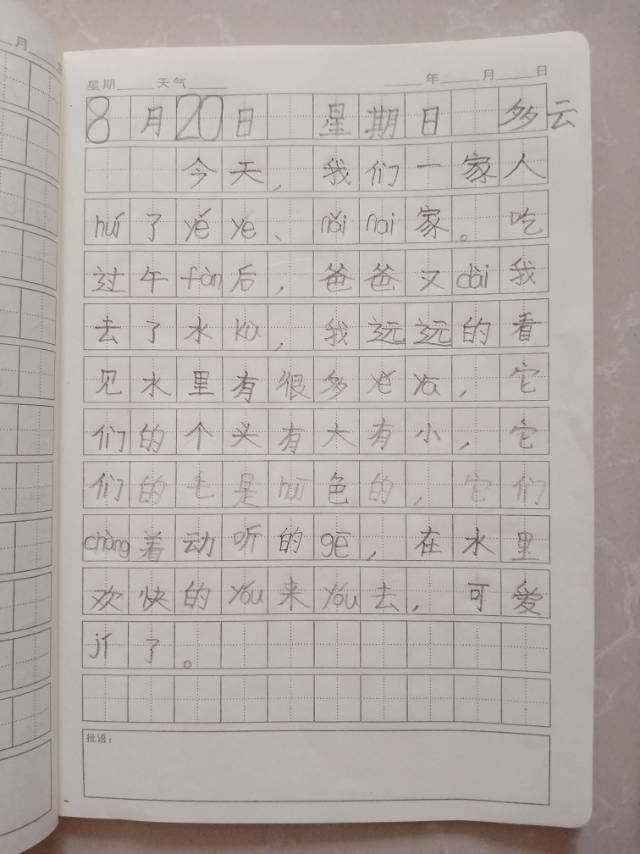 月
星期 天气 年 月 日
8月20日 星期日 多云
今天，我们一家人
huí了yé ye、nǎi nai家。吃
过午fàn后，爸爸又dài我
去了水kù，我远远的看
见水里有很多yě yā，它
们的个头有大有小，它
们的毛是huī色的，它们
chàng着动听的gē，在水里
欢快的yóu来yóu去，可爱
jí了。
批语：